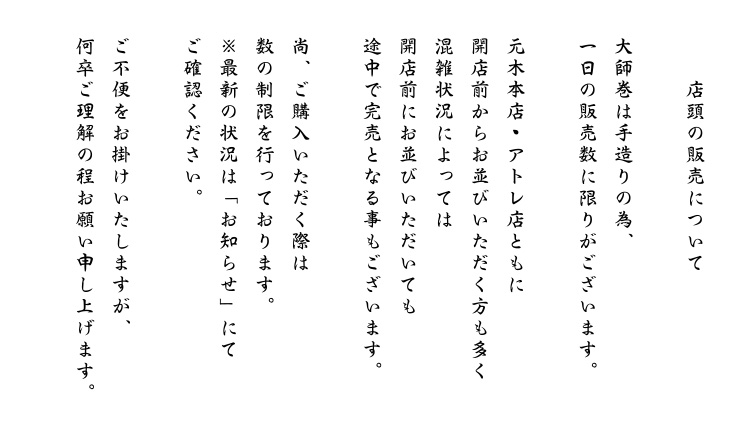 店頭の販売について
大師巻は手造りの為、
一日の販売数に限りがございます。
元木本店・アトレ店ともに
開店前からお並びいただく方も多く
混雑状況によっては
開店前にお並びいただいても
途中で完売となる事もございます。
尚、ご購入いただく際は
数の制限を行っております。
※最新の状況は「お知らせ」にて
ご確認ください。
ご不便をお掛けいたしますが、
何卒ご理解の程お願い申し上げます。